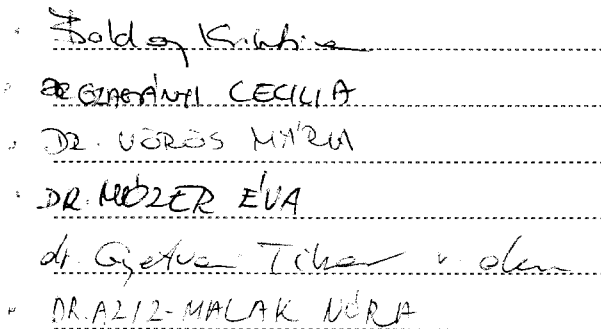 Boldog Krisztina
DR CZAGÁNYI CECILIA
DR. VÖRÖS MÁRIA
DR. MÓZER ÉVA
dr. Gyetvai Tibor
DR. AZIZ-MALAK NÓRA